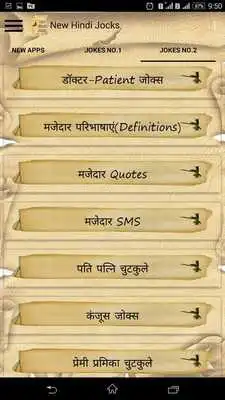 9:50
New Hindi Jocks
NEW APPS JOKES NO.1 JOKES NO.2
डॉक्टर-Patient जोक्स
मजेदार परिभाषाएं(Definitions)
मजेदार Quotes
मजेदार SMS
पति पत्नि चुटकुले
कंजूस जोक्स
प्रेमी प्रमिका चुटकुले